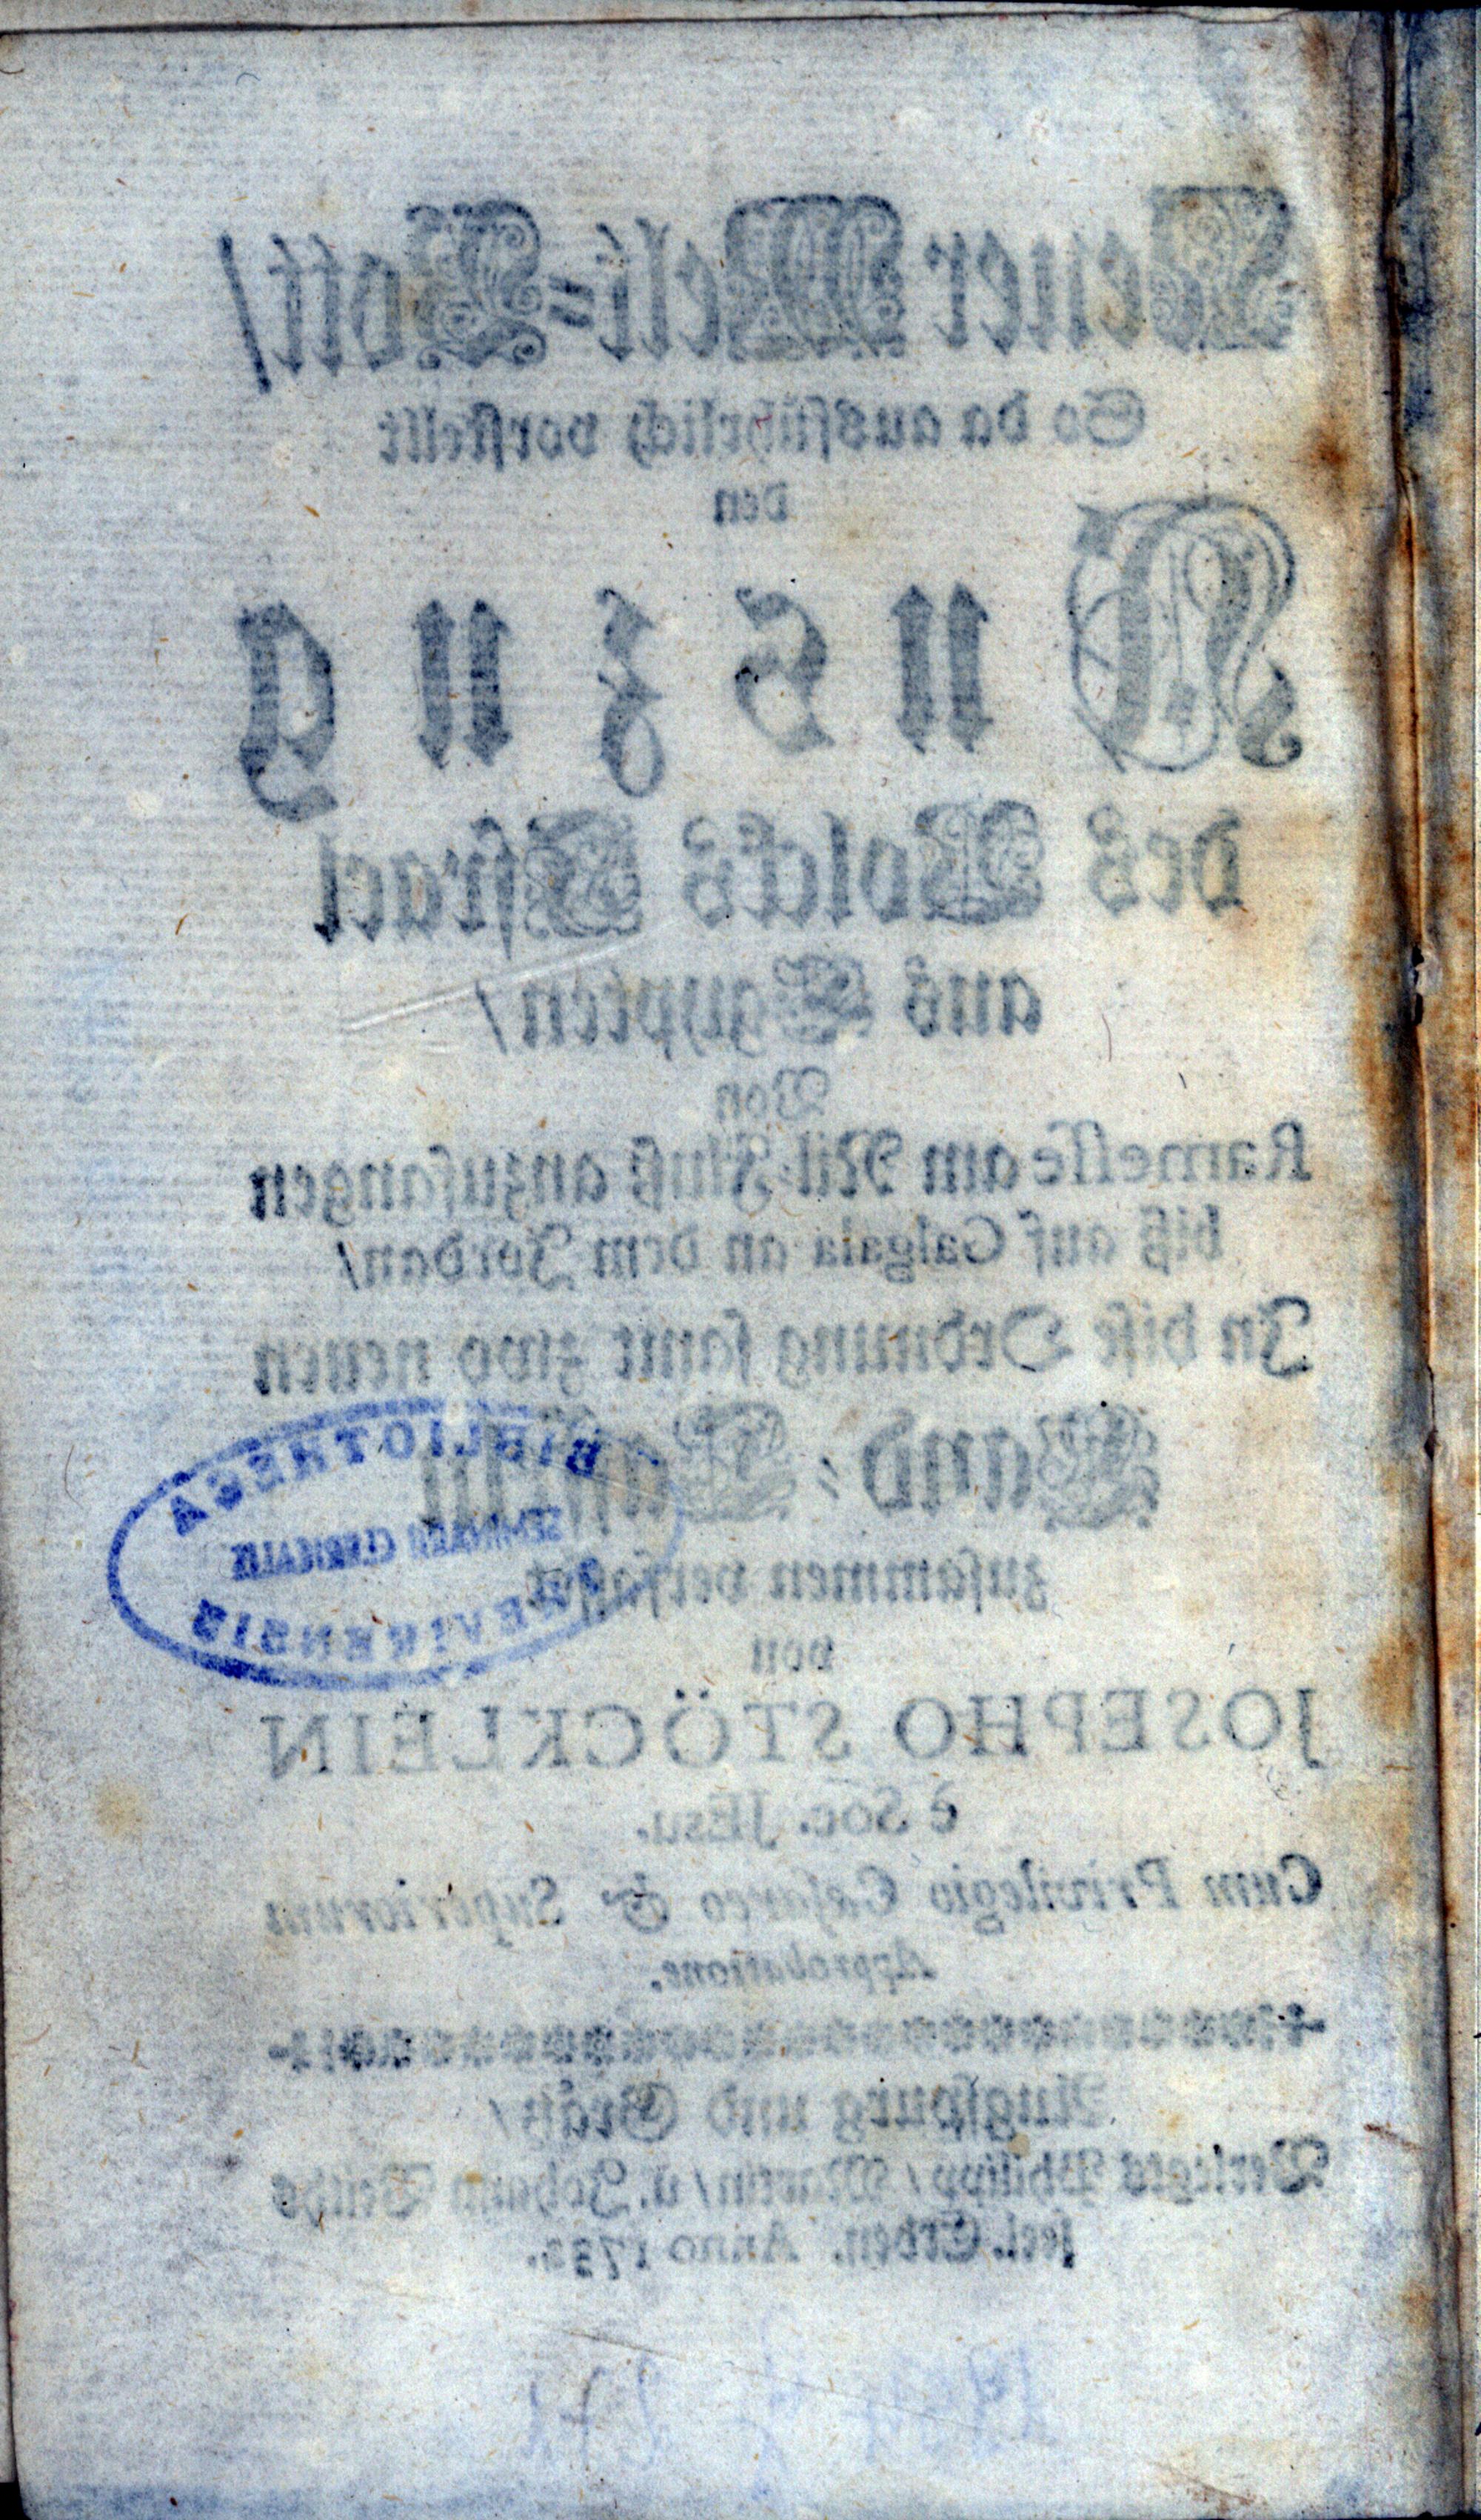 Neuer Welt=Bott/
So da ausführlich vorstellt
den
Auszug
des Volcks Israel
aus Egypten/
Von
Ramesse am Nil-Fluß anzufangen
biß auf Galgala an dem Jordan/
In dise Ordnung samt zwo neuen
Land-Tafeln
zusammen verfasset
von
JOSEPHO STÖCKLEIN
è Soc. JEsu.
Cum Privilegio Cæsareo & Superiorum
Approbatione.
Augspurg und Grätz/
Verlegts Philipp/ Martin/ u. Johann Veiths
seel. Erben. Anno
BIBLIOTHECA
SEMINARII CLERICALIS
TREVIRENSIS